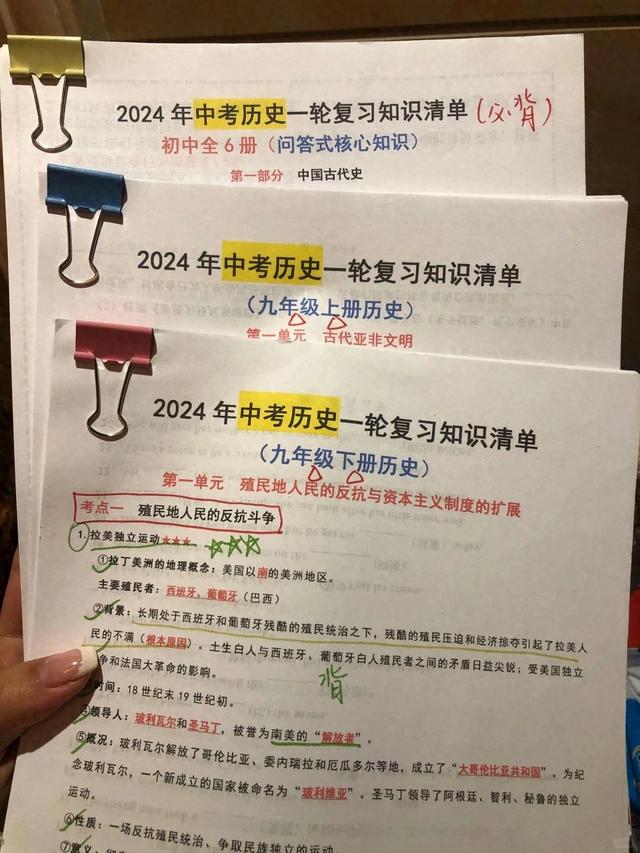 2024 年中考历史一轮复习知识清单(必背)
初中全 6 册（问答式核心知识）
第一部分 中国古代史
2024 年中考历史一轮复习知识清单
（九年级上册历史）
第一单元 古代亚非文明
2024 年中考历史一轮复习知识清单
（九年级下册历史）
第一单元 殖民地人民的反抗与资本主义制度的扩展
考点一 殖民地人民的反抗斗争
1.拉美独立运动★★★ ☆☆☆
①拉丁美洲的地理概念：美国以南的美洲地区。
主要殖民者：西班牙、葡萄牙（巴西）
②背景：长期处于西班牙和葡萄牙残酷的殖民统治之下，残酷的殖民压迫和经济掠夺引起了拉美人
民的不满（根本原因）。土生白人与西班牙、葡萄牙白人殖民者之间的矛盾日益尖锐；受美国独立
争和法国大革命的影响。
背
时间：18 世纪末 19 世纪初。
④领导人：玻利瓦尔和圣马丁，被誉为南美的“解放者”。
⑤概况：玻利瓦尔解放了哥伦比亚、委内瑞拉和厄瓜多尔等地，成立了“大哥伦比亚共和国”。为纪
念玻利瓦尔，一个新成立的国家被命名为“玻利维亚”。圣马丁领导了阿根廷、智利、秘鲁的独立
运动。
⑥性质：一场反抗殖民统治、争取民族独立的运动。
⑦意义：